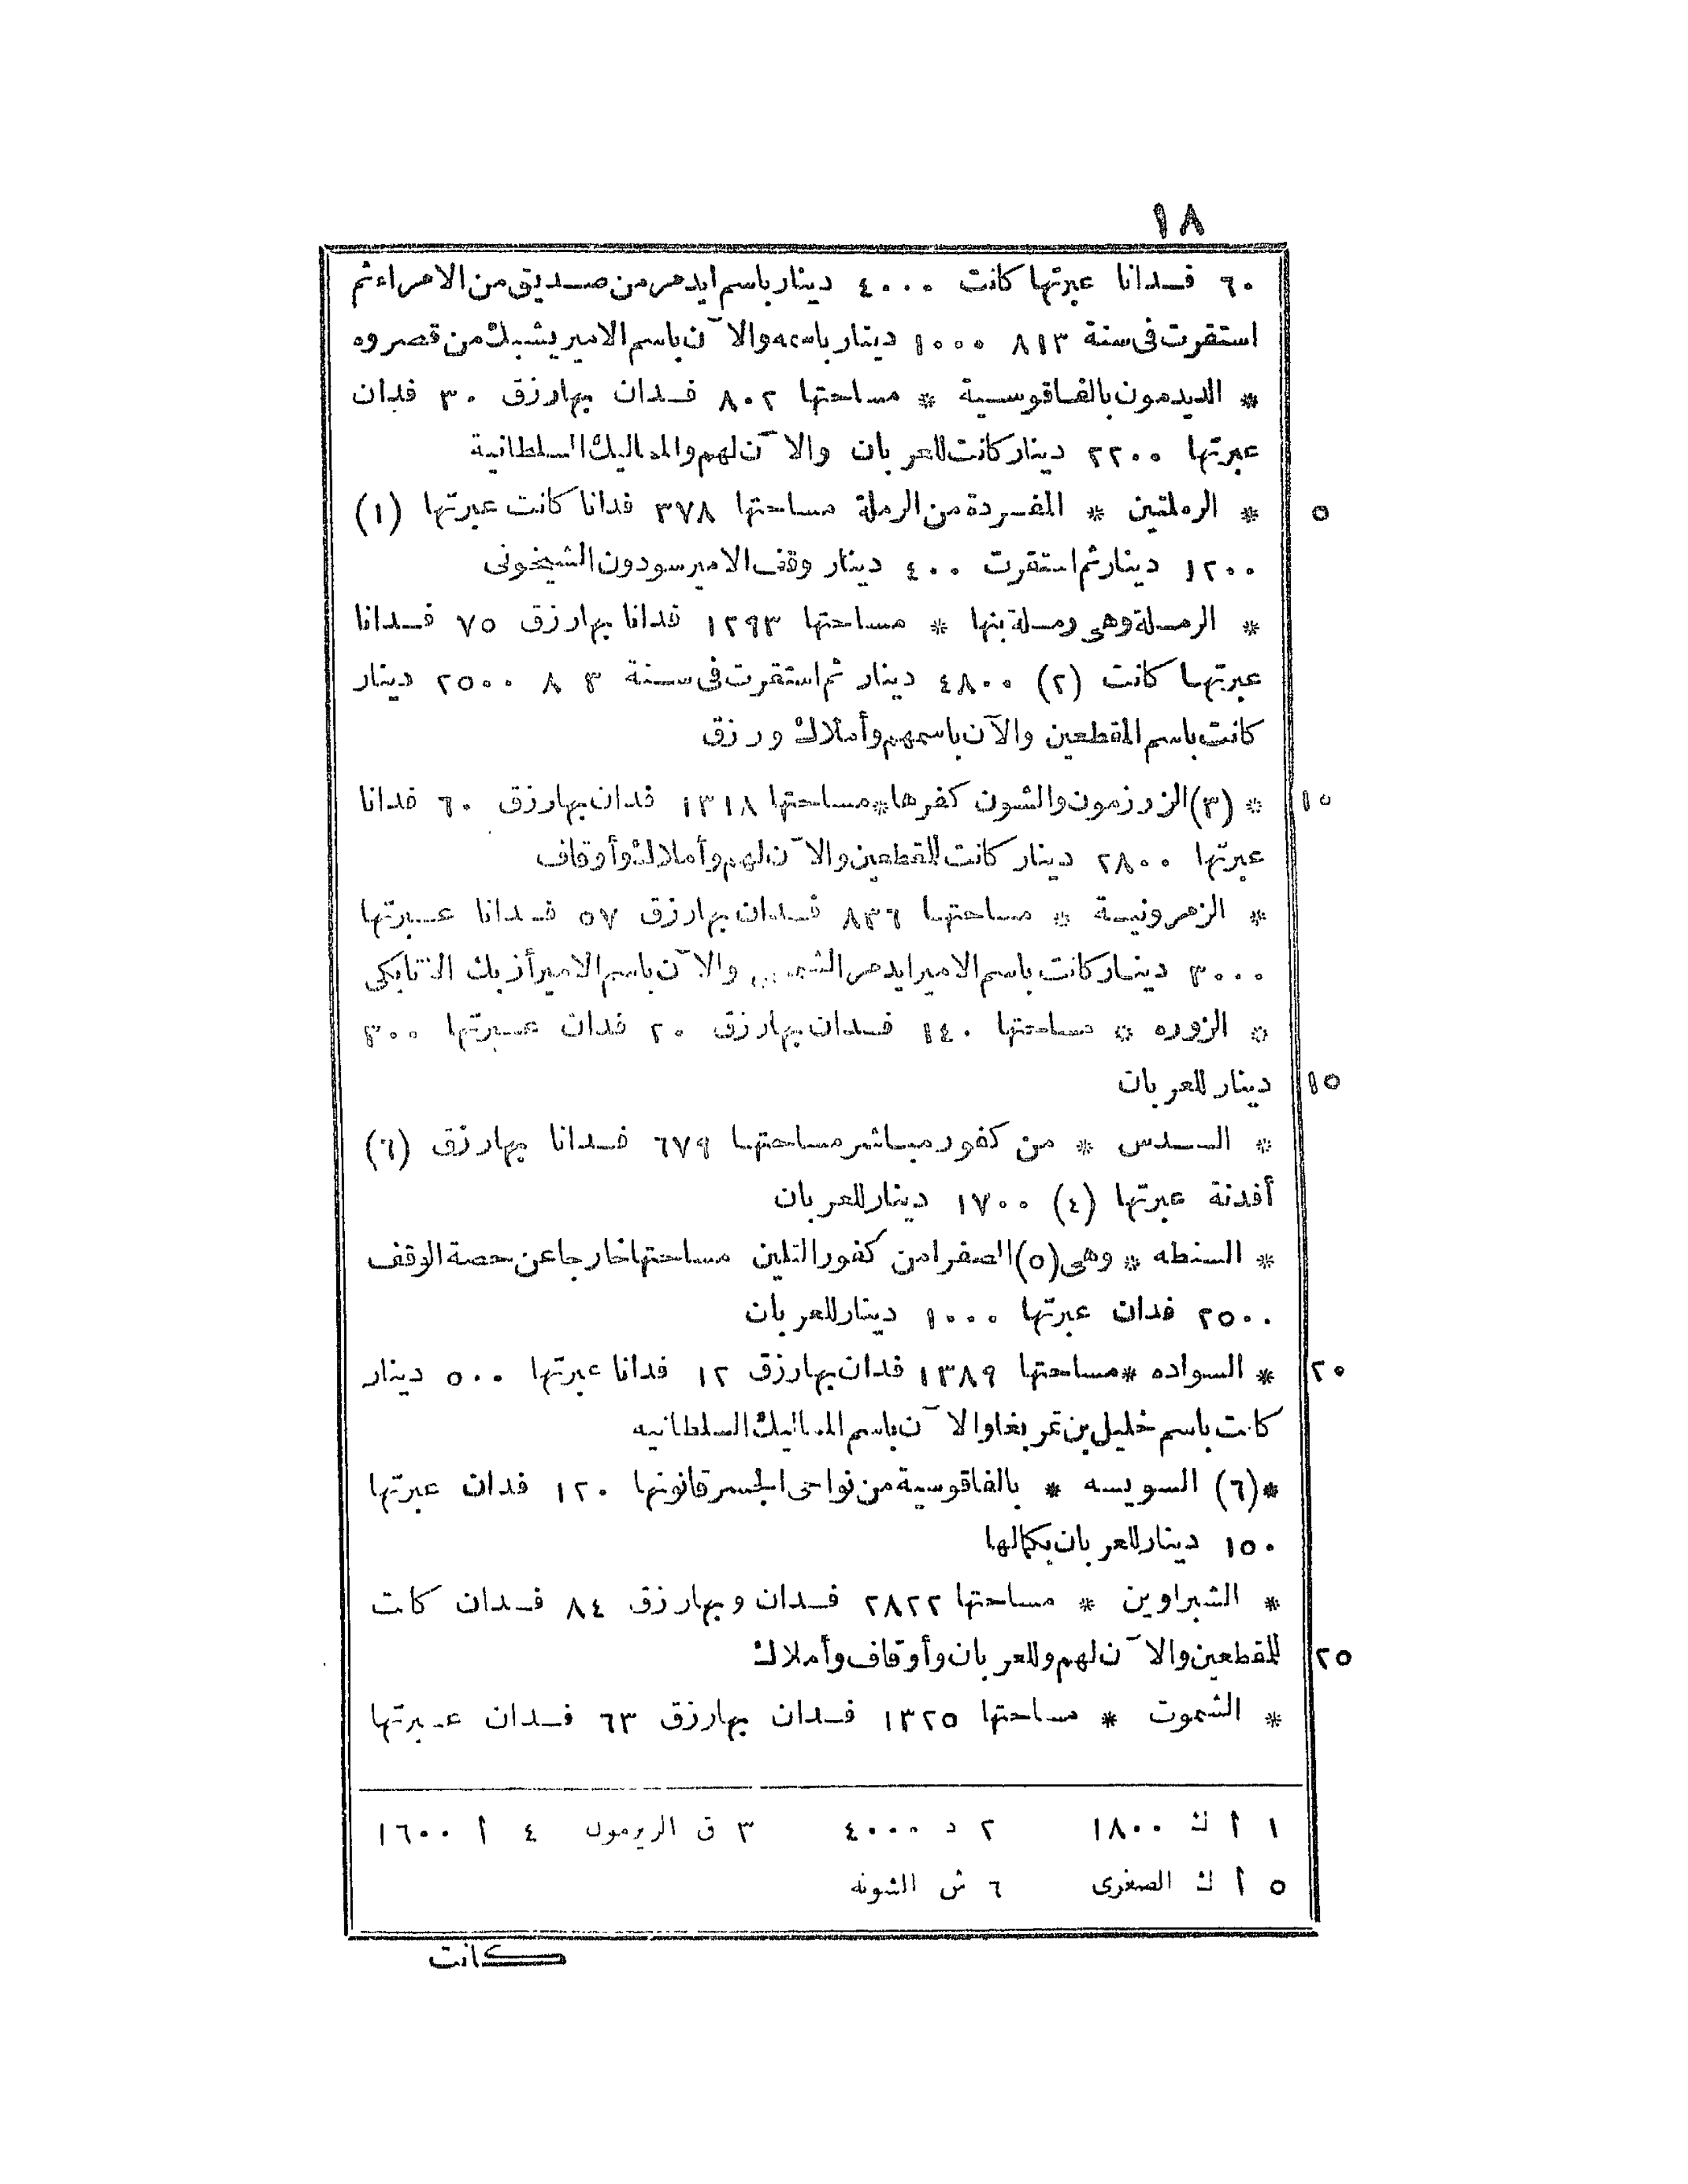 ١٨
٦٠ فـدانا عبرتها كانت ٤٠٠٠ دينار باسم ايدمر من صـديق من الامراء ثم
استقرت فى سنة ٨١٣ ١٠٠٠ دينار باسمه والآن باسم الامير يشبك من قصروه
* الديدمون بالفاقوسية * مساحتها ٨٠٢ فـدان بها رزق ٣٠ فدان
عبرتها ٢٢٠٠ دينار كانت للعربان والآن لهم والمماليك السلطانية
٥ * الرملتين * المفـردة من الرملة مساحتها ٣٧٨ فدانا كانت عبرتها (١)
١٢٠٠ دينار ثم استقرت ٤٠٠ دينار وقف الامير سودون الشيخونى
* الرمـلة وهى رمـلة بنها * مساحتها ١٢٩٣ فدانا بها رزق ٧٥ فـدانا
عبرتها كانت (٢) ٤٨٠٠ دينار ثم استقرت فى سـنة ٨ ٣ ٢٥٠٠ دينار
كانت باسم المقطعين والآن باسمهم وأملاك ورزق
١٠ * (٣) الزرزمون والشون كفرها * مساحتها ١٣١٨ فدان بها رزق ٦٠ فدانا
عبرتها ٢٨٠٠ دينار كانت للقطعين والآن لهم وأملاك وأوقاف
* الزهرونيـة * مساحتها ٨٣٦ فـدان بها رزق ٥٧ فـدانا عـبرتها
٣٠٠٠ دينـار كانت باسم الامير ايدمر والآن باسم الامير أزبك الاتابكى
* الزوره * مساحتها ١٤٠ فـدان بها رزق ٢٠ فدان عـبرتها ٣٠٠
١٥ دينار للعربان
* السـدس * من كفور مباشر مساحتها ٦٧٩ فـدانا بها رزق (٦)
أفدنة عبرتها (٤) ١٧٠٠ دينار للعربان
* السنطه * وهى (٥) الصفرا من كفور التلين مساحتها خارجا عن حصة الوقف
٢٥٠٠ فدان عبرتها ١٠٠٠ دينار للعربان
٢٠ * السواده * مساحتها ١٣٨٩ فدان بها رزق ١٢ فدانا عبرتها ٥٠٠ دينار
كانت باسم خليل بن تمر بغا والآن باسم المماليك السلطانيه
* (٦) السويسه * بالفاقوسية من نواحى الجسر قانونها ١٢٠ فدان عبرتها
١٥٠ دينار للعربان بكمالها
* الشبراوين * مساحتها ٢٨٢٢ فـدان وبها رزق ٨٤ فـدان كانت
٢٥ للمقطعين والآن لهم وللعربان وأوقاف وأملاك
* الشموت * مساحتها ١٣٢٥ فـدان بها رزق ٦٣ فـدان عـبرتها
١ أ ك ١٨٠٠ ٢ د ٤٠٠٠ ٣ ق الريرمون ٤ أ ١٦٠٠
٥ أ ك الصغرى ٦ ش الشونه
كانت